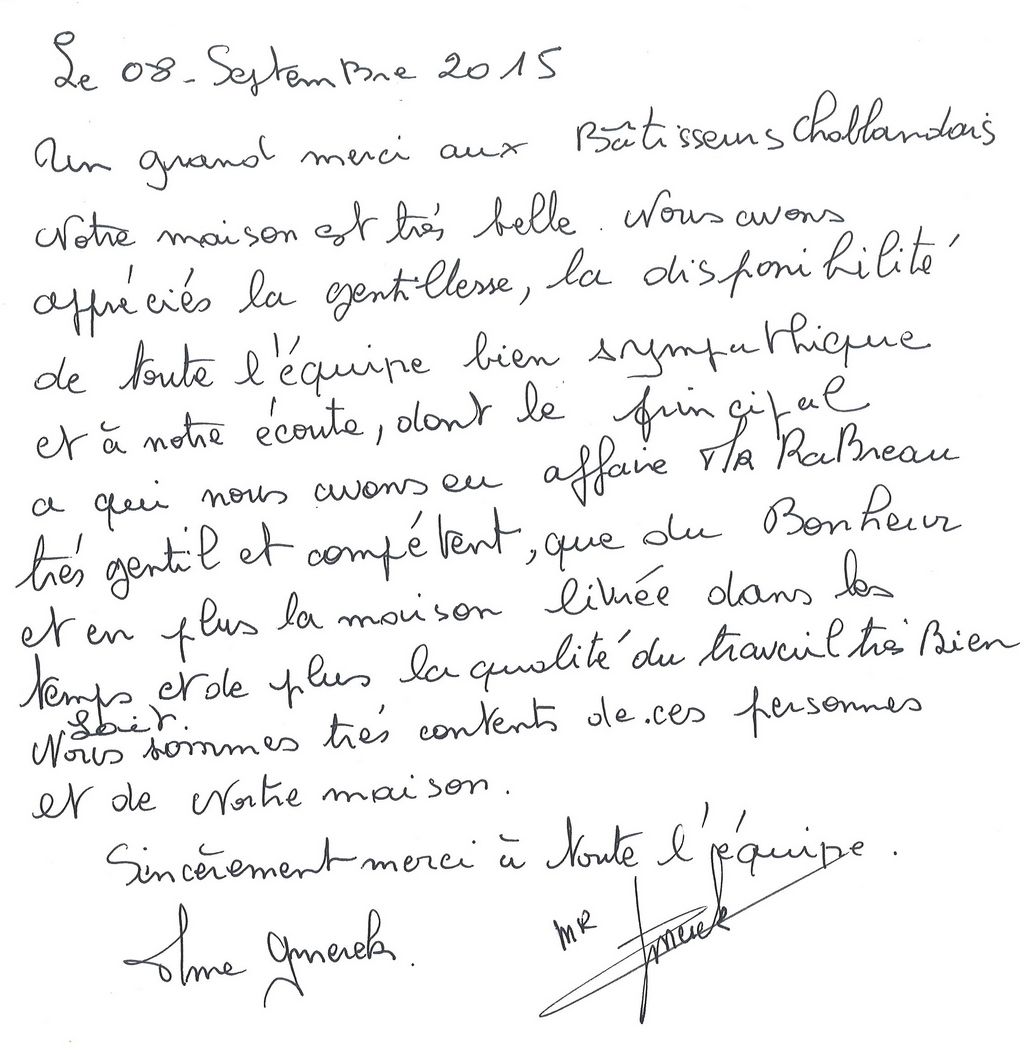 Le 08 - Septembre 2015
Un grand merci aux Bâtisseurs Chablandais
Notre maison est très belle. Nous avons
appréciés la gentillesse, la disponibilité
de toute l'équipe bien sympathique
et à notre écoute, dont le principal
a qui nous avons eu affaire Mr RaBreau
très gentil et compétent, que du Bonheur
et en plus la maison livrée dans les
temps et de plus la qualité du travail très Bien
Nous sommes très contents de.ces personnes
et de Notre maison.
Sincèrement merci à toute l'équipe.
Mme Gmerek.
MR Gmerek